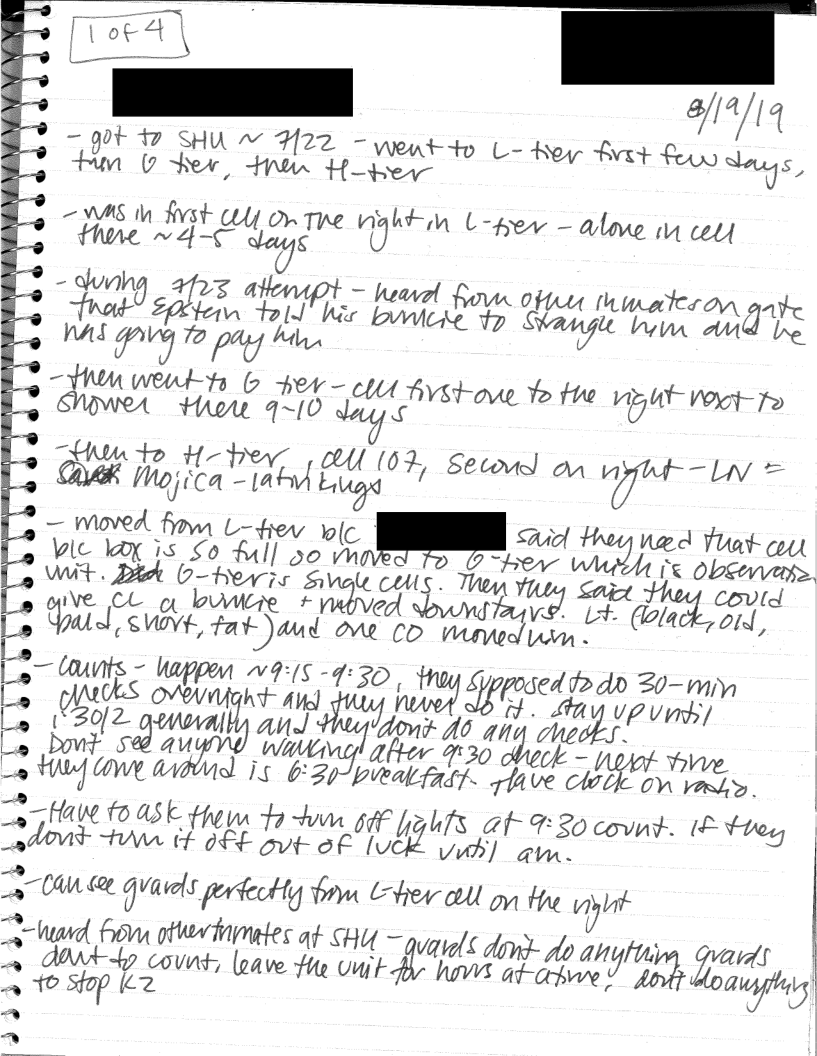 1 of 4
8/19/19
- got to SHU ~ 7/22 - went to L-tier first few days,
then G tier, then H-tier
- was in first cell on the right in L-tier - alone in cell
there ~4-5 days
- during 7/23 attempt - heard from other inmates on gate
that Epstein told his bunkie to strangle him and he
was going to pay him
- then went to G tier - cell first one to the right next to
shower there 9-10 days
- then to H-tier, cell 107, second on right - LN =
Mojica - latin kings
- moved from L-tier b/c said they need that cell
b/c box is so full so moved to G-tier which is observation
unit. G-tier is single cells. Then they said they could
give CL a bunkie + moved downstairs. Lt. (black, old,
bald, short, fat) and one CO moved him.
- Counts - happen ~9:15-9:30, they supposed to do 30-min
checks overnight and they never do it. stay up until
1:30/2 generally and they don't do any checks.
Don't see anyone walking after 9:30 check - next time
they come around is 6:30 breakfast. Have clock on radio.
- Have to ask them to turn off lights at 9:30 count. if they
don't turn it off out of luck until am.
- can see guards perfectly from L-tier cell on the right
- heard from other inmates at SHU - guards don't do anything, guards
don't to count, leave the unit for hours at a time, don't do anything
to stop K2